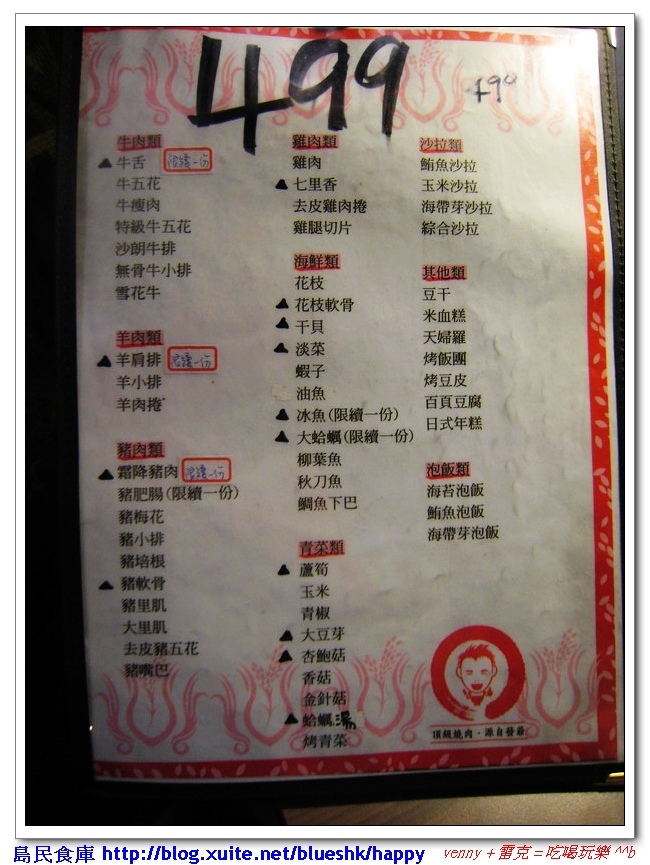 499
490
牛肉類
▲牛舌 限續一份
牛五花
牛瘦肉
特級牛五花
沙朗牛排
無骨牛小排
雪花牛
羊肉類
▲羊肩排 限續一份
羊小排
羊肉捲
豬肉類
▲霜降豬肉 限續一份
豬肥腸(限續一份)
豬梅花
豬小排
豬培根
▲豬軟骨
豬里肌
大里肌
去皮豬五花
豬嘴巴
雞肉類
雞肉
▲七里香
去皮雞肉捲
雞腿切片
海鮮類
花枝
▲花枝軟骨
▲干貝
▲淡菜
蝦子
油魚
▲冰魚(限續一份)
▲大蛤蠣(限續一份)
柳葉魚
秋刀魚
鯛魚下巴
青菜類
▲蘆筍
玉米
青椒
▲大豆芽
▲杏鮑菇
香菇
金針菇
▲蛤蠣湯
烤青菜
沙拉類
鮪魚沙拉
玉米沙拉
海帶芽沙拉
綜合沙拉
其他類
豆干
米血糕
天婦羅
烤飯團
烤豆皮
百頁豆腐
日式年糕
泡飯類
海苔泡飯
鮪魚泡飯
海帶芽泡飯
頂級燒肉·源自發爺
島民食庫 http://blog.xuite.net/blueshk/happy
venny + 雷克 = 吃喝玩樂 ^^b